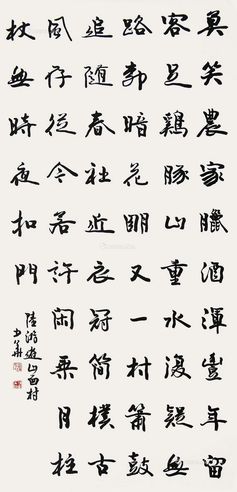 莫笑農家臘酒渾豐年留
客足鷄豚山重水複疑無
路柳暗花明又一村簫鼓
追随春社近衣冠簡樸古
風存從今若許閑乘月拄
杖無時夜扣門
陸游遊山西村